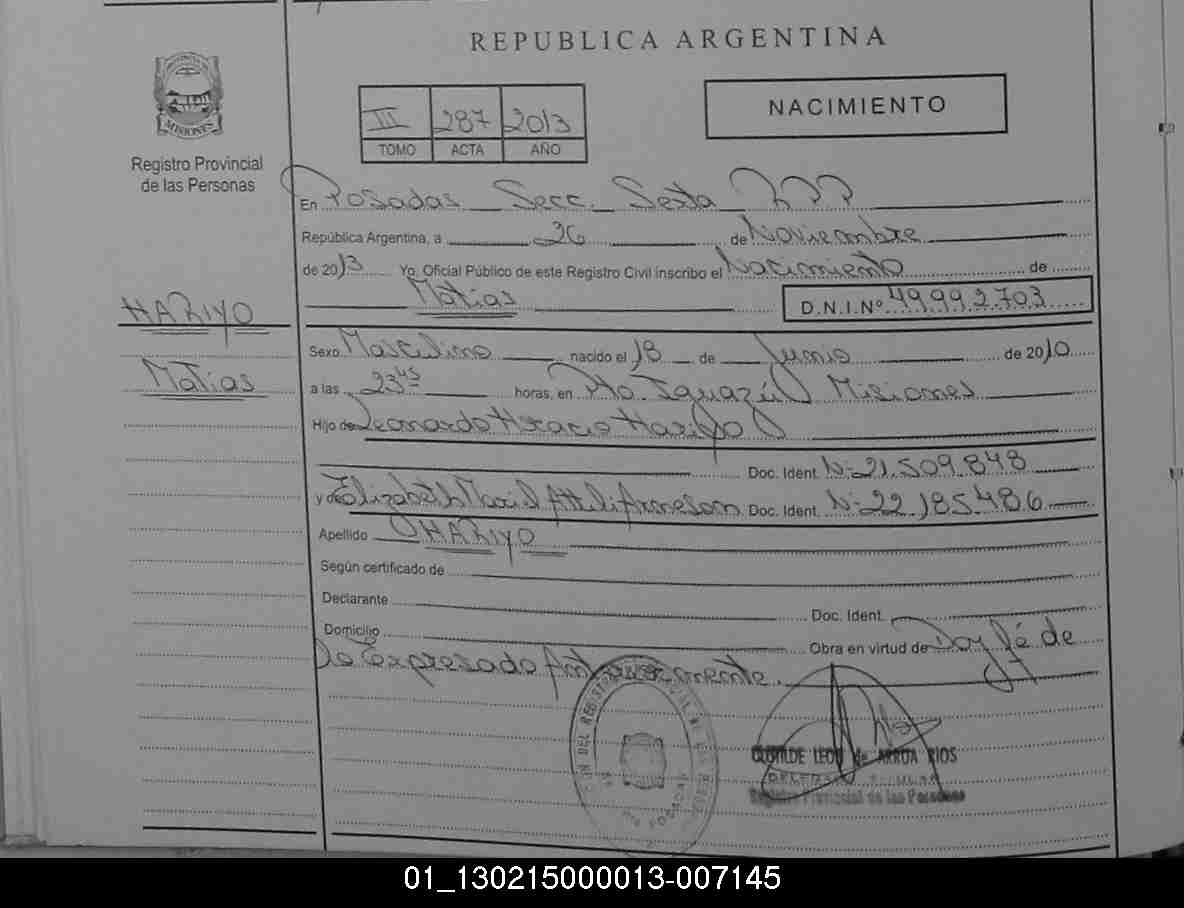 REPUBLICA ARGENTINA
MISIONES
Registro Provincial
de las Personas
III 287 2013
TOMO ACTA AÑO
NACIMIENTO
En Posadas Secc. Sexta
República Argentina, a 26 de Noviembre
de 2013 Yo, Oficial Público de este Registro Civil inscribo el Nacimiento de
Matías D.N.I.Nº 49.992.703
HARIYO
Matías
Sexo Masculino nacido el 18 de Junio de 2010
a las 23 45 horas, en Pto. Iguazú Misiones
Hijo de Leonardo Horacio Hariyo
Doc. Ident. Nº 21.509.848
y de Elizabeth Doc. Ident. Nº 22.185.486
Apellido HARIYO
Según certificado de
Declarante Doc. Ident.
Domicilio Obra en virtud de Doy fé de
lo Expresado Anteriormente.
CLOTILDE LEON de ARRUA RIOS
Registro Provincial de las Personas
01_130215000013-007145